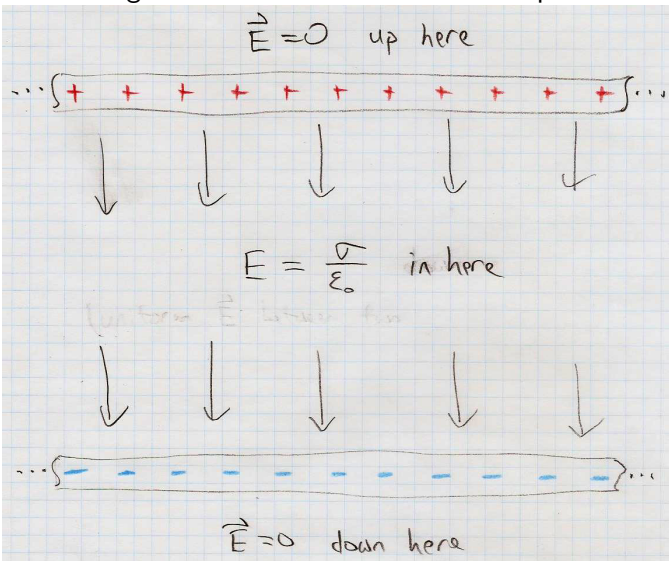 E⃗ =0 up here
... + + + + + + + + + + + ...
E = σ/ε₀ in here
... - - - - - - - - - - - ...
E⃗ =0 down here